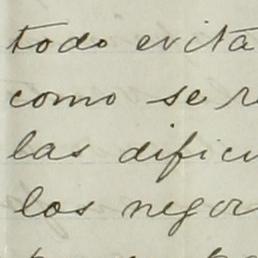 todo evita
como se r
las dificu
los negor